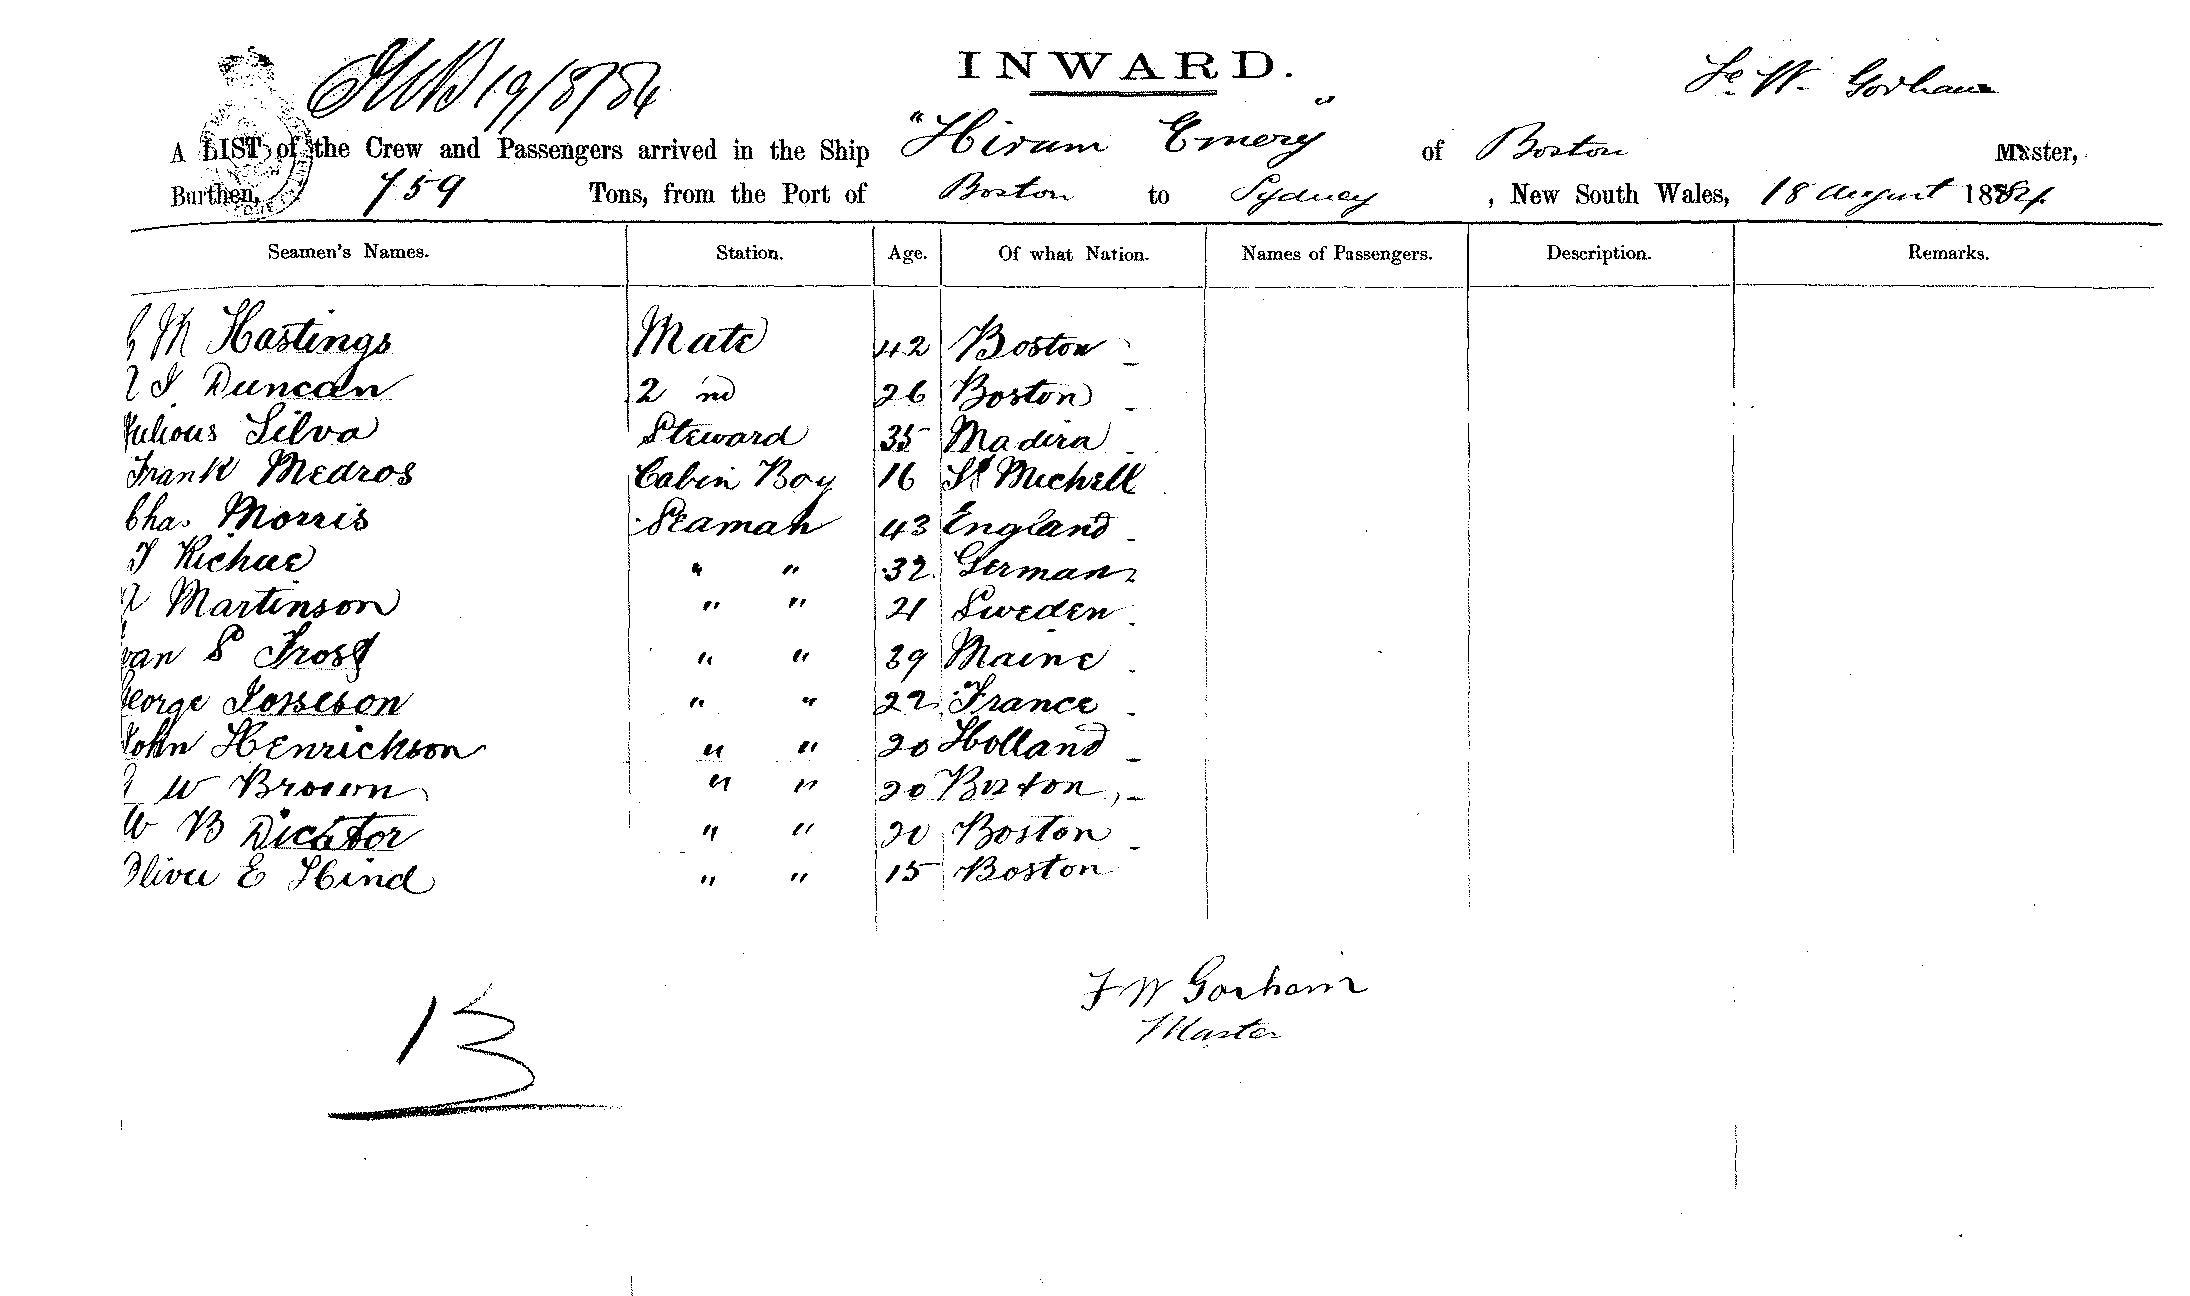 19/8/84
INWARD.
F. W. Gorham
A LIST of the Crew and Passengers arrived in the Ship "Hiram Emery" of Boston Master,
Burthen, 759 Tons, from the Port of Boston to Sydney, New South Wales, 18 August 1884
Seamen's Names. Station. Age. Of what Nation. Names of Passengers. Description. Remarks.
M Hastings Mate 42 Boston
Duncan 2 nd 26 Boston
Julious Silva Steward 35 Madira
Frank Medros Cabin Boy 16 St Michell
Chas. Morris Seaman 43 England
Richae " " 32 German
Martinson " " 21 Sweden
S Frost " " 39 Maine
George Josseson " " 22 France
John Henrickson " " 20 Holland
W Brown " " 20 Boston
W B Dictator " " 20 Boston
Oliver E Hind " " 15 Boston
13
F W Gorham
Master